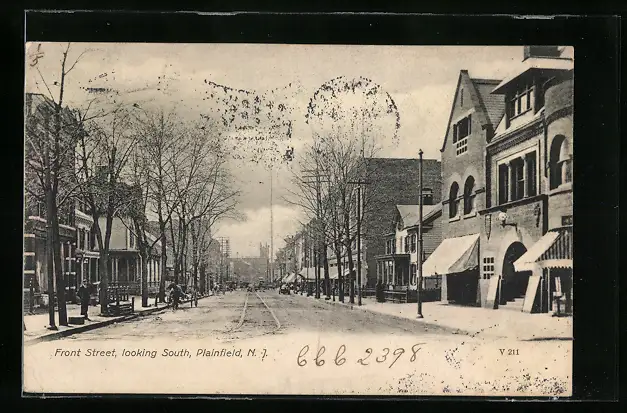 Front Street, looking South, Plainfield, N. J.
666 2398
V 211